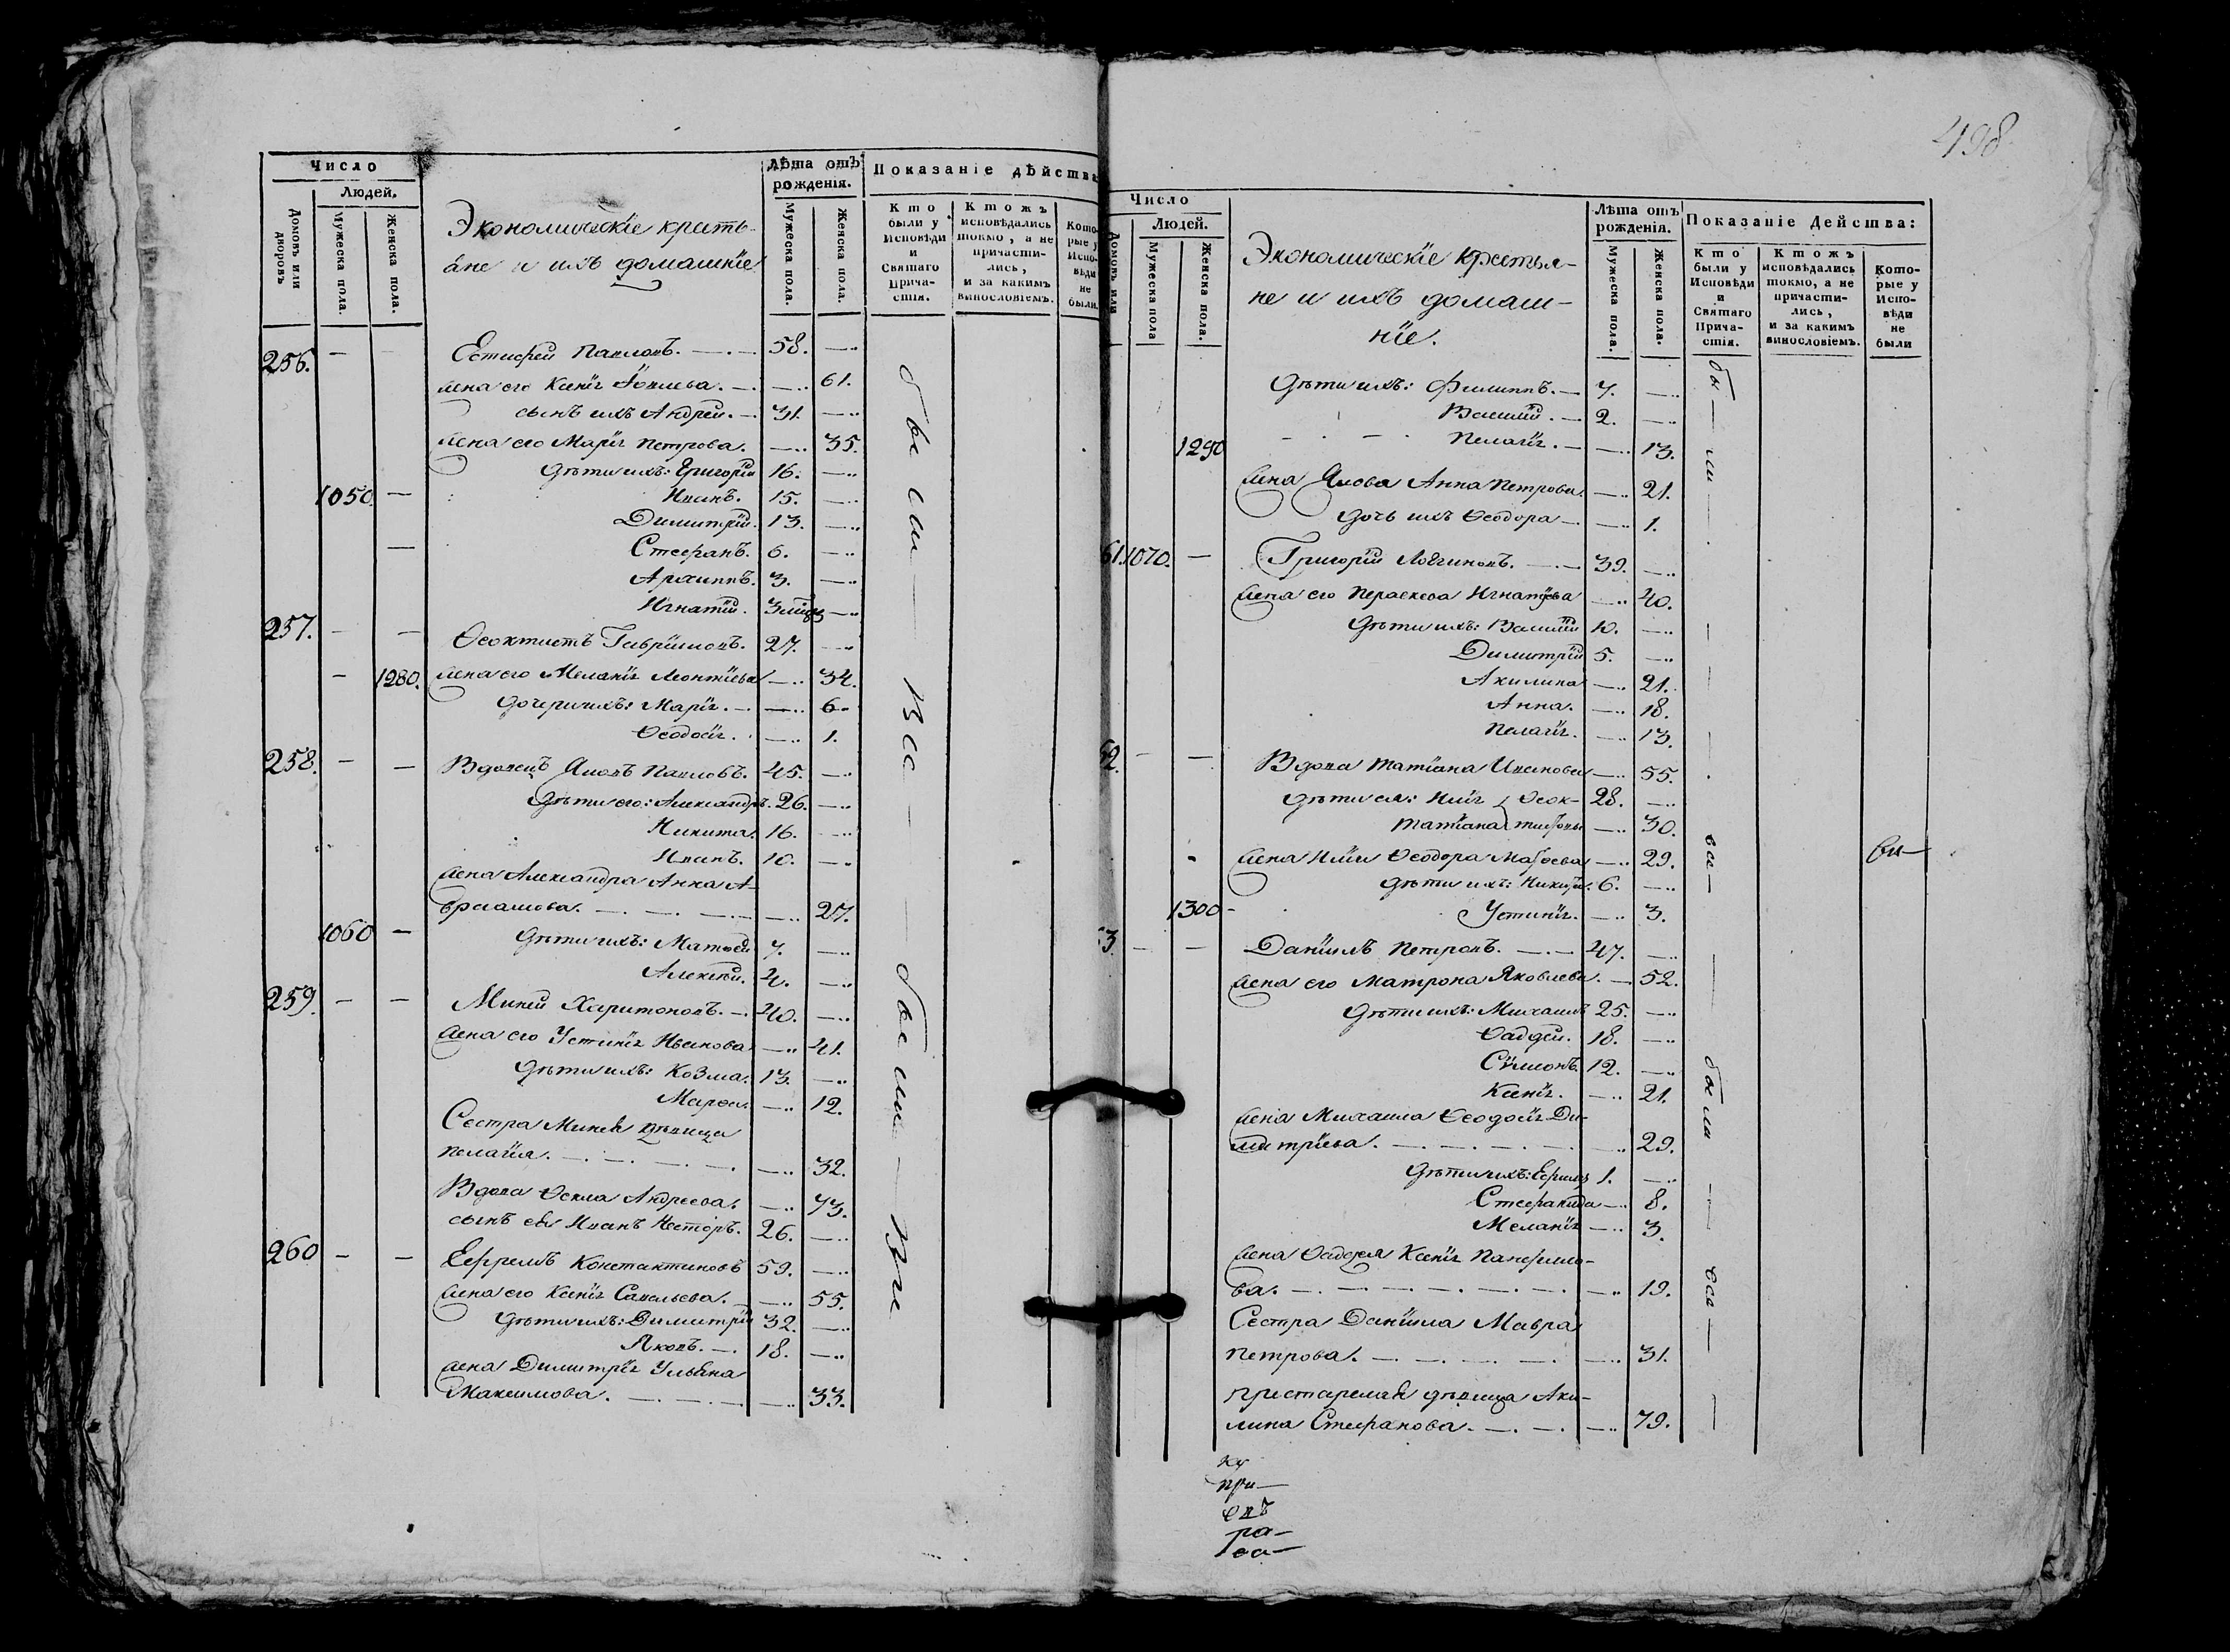 Число
Людей.
Домовъ или дворовъ
Мужеска пола.
Женска пола.
Экономическіе кресть-
яне и ихъ домашніе
Лѣта отъ рожденія.
Мужеска пола.
Женска пола.
Показаніе дѣйства
Кто были у Исповѣди и Святаго Прича-стія.
Ктожъ исповѣдались токмо, а не причасти-лись, и за какимъ винословіемъ.
Кото-рые у Испо-вѣди не были.
256. — — Естифей Павловъ. — 58. —
жена его Ксенія — 61.
сынъ ихъ Андрей. — 31. —
жена его Марія Петрова. — 35.
дѣти ихъ: Григорій 16. —
1050. — Иванъ. 15. —
Димитрій. 13. —
— Стефанъ. 6. —
Архиппъ. 3. —
Игнатій. —
257. — — Ѳеоктистъ Гавріиловъ. 27. —
— 1280. жена его Меланія Леонтіева — 34.
дочери ихъ: Марія. — 6
Ѳеодосія. — 1.
258. — — Вдовецъ Яковъ Павловъ. 45. —
дѣти его: Александръ. 26. —
Никита. 16. —
Иванъ. 10. —
жена Александра Анна А-
врамова. — 27.
1060 — дѣти ихъ: Матѳей 7. —
Алексѣй. 4. —
259. — — Миней Харитоновъ. — 40. —
жена его Устинія Иванова — 41.
дѣти ихъ: Козма. 13. —
Марѳа. — 12.
Сестра Минея дѣвица
Пелагія. — 32.
Вдова Ѳекла Андреева. — 73.
сынъ ея Иванъ Несторъ. 26. —
260 — — Ефремъ Константиновъ 59. —
жена его Ксенія Савельева. — 55.
дѣти ихъ: Димитрій 32. —
Яковъ. — 18. —
жена Димитрія Ульяна
Максимова. — 33.
были — Всѣ — были — Всѣ
498
Число
Людей.
Домовъ или
Мужеска пола
Женска пола.
Экономическіе крестья-
не и ихъ домаш-
ніе.
Лѣта отъ рожденія.
Мужеска пола.
Женска пола.
Показаніе Действа:
Кто были у Исповѣди и Святаго Прича-стія.
Ктожъ исповѣдались токмо, а не причасти-лись, и за какимъ винословіемъ.
Кото-рые у Испо-вѣди не были
дѣти ихъ: Филиппъ. — 7. —
Василій. — 2. —
1290 Пелагія. — 13.
жена Якова Анна Петрова. — 21.
дочь ихъ Ѳеодора — 1.
61. 1070. — Григорій Логгиновъ. — 39. —
жена его Параскева Игнатіева — 40.
дѣти ихъ: Василій 10. —
Димитрій 5. —
Акилина — 21.
Анна. — 18.
Пелагія. — 13.
62. — — Вдова Татіана Иванова — 55.
дѣти ея: Илія Ѳеок- 28. —
Татіана тистовы — 30.
жена Иліи Ѳеодора — 29.
дѣти ихъ: Никита. 6. —
1300 — Устинія. — 3.
3. — — Даніилъ Петровъ. — 47. —
жена его Матрона Яковлева. — 52.
дѣти ихъ: Михаилъ 25. —
Ѳаддей. 18. —
Сѵмеонъ. 12. —
Ксенія. — 21.
жена Михаила Ѳеодосія Ди-
митріева. — 29.
дѣти ихъ: 1. —
Стефанида — 8.
Меланія — 3.
жена Ѳаддея Ксенія Панфило-
ва. — 19.
Сестра Даніила Мавра
Петрова. — 31.
Престарелая дѣвица Аки-
лина Стефанова. — 79.
бы — ли — всѣ — были — всѣ —
при—
евъ
ра—